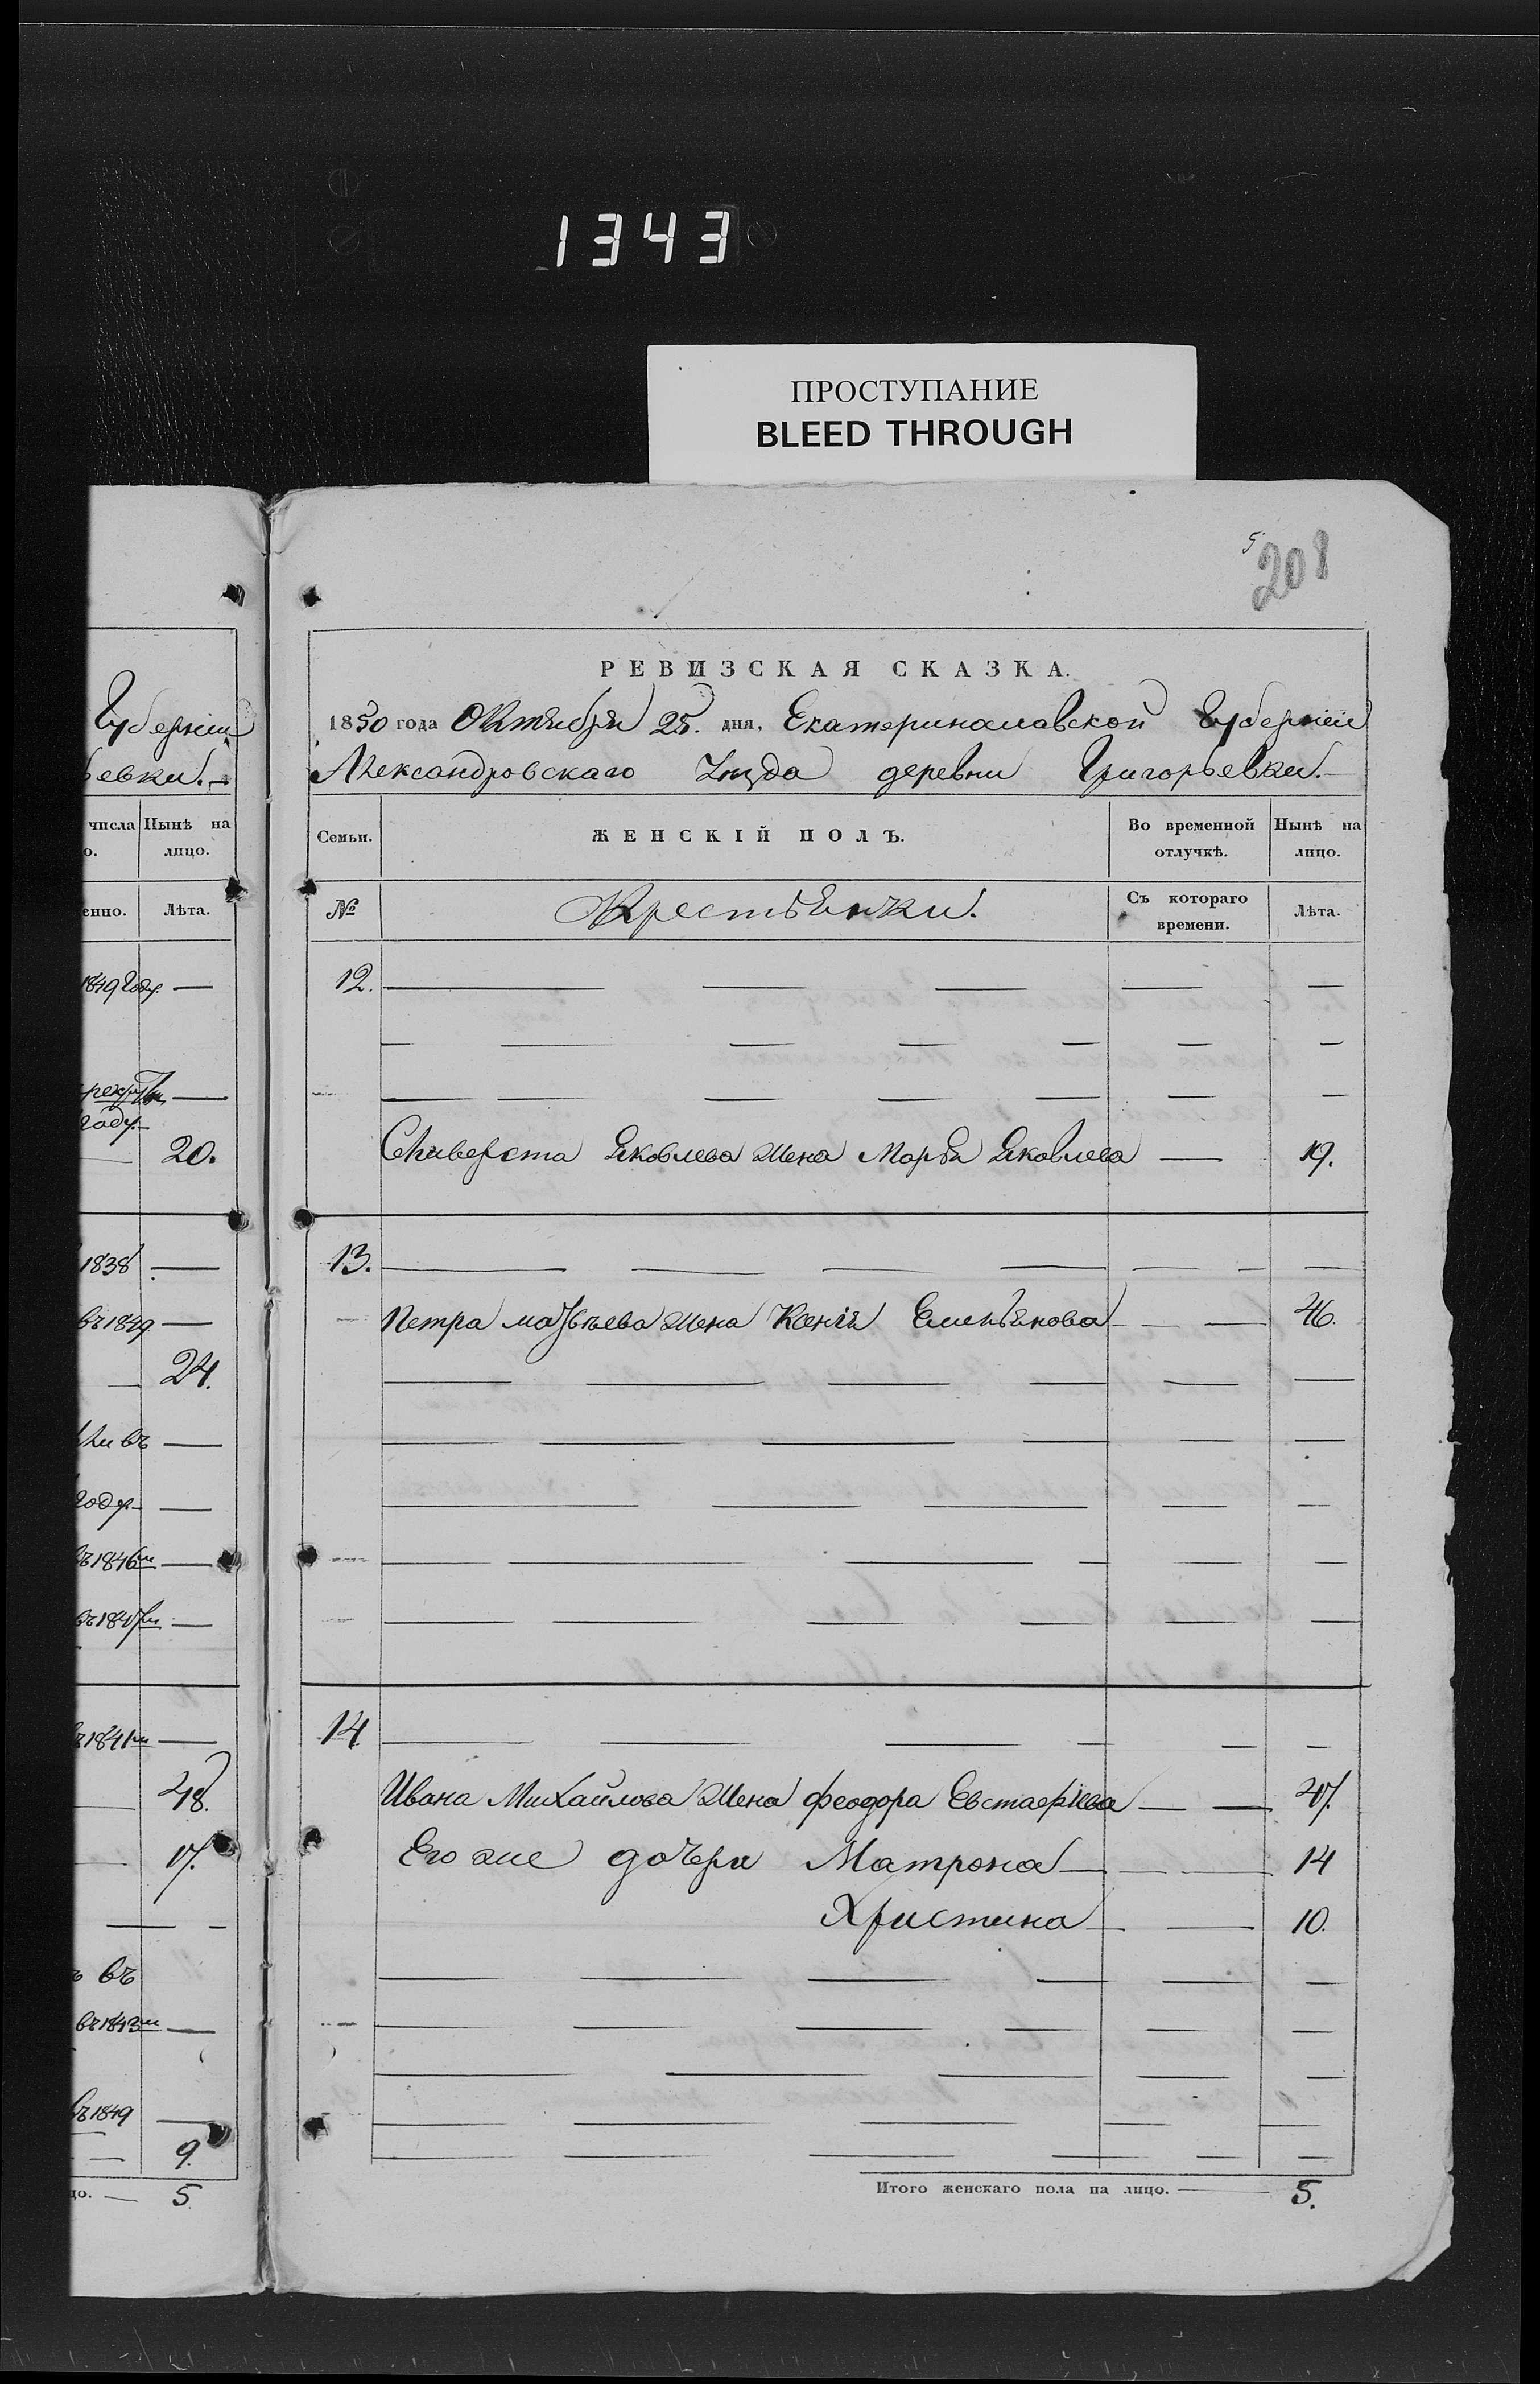 1343
ПРОСТУПАНИЕ
BLEED THROUGH
5
208
Губерніи
ьевки.
числа Нынѣ на
о. лицо.
енно. Лѣта.
1849 году. —
рекруты —
году —
— 20.
1838 —
въ 1849 —
— 24.
ли въ —
году —
въ 1846м —
въ 1847м —
въ 1841м —
— 48.
— 17.
— —
ъ въ
въ 1843м —
въ 1849 —
— 9.
цо. — 5
РЕВИЗСКАЯ СКАЗКА.
1850 года Октября 25. дня, Екатеринославской Губерніи
Александровскаго Уѣзда деревни Григорьевки.—
Семьи. ЖЕНСКІЙ ПОЛЪ. Во временной отлучкѣ. Нынѣ на лицо.
№ Крестьянки. Съ котораго времени. Лѣта.
12. — — — — —
— — — — — — —
— — — — — —
Селиверста Яковлева жена Марья Яковлева — 19.
13. — — — — — — —
Петра Матвѣева жена Ксенія Емельянова — — 46.
— — — — — —
— — — — — —
— — — — —
— — — — — —
— — — — — —
14 — — — — — —
Ивана Михайлова жена Феодора Евстафіева — — 47.
Его же дочери Матрона — — 14
Христина — — 10.
— — — — — —
— — — — — —
— — — — —
— — — — —
— — — — — — —
Итого женскаго пола на лицо. — 5.